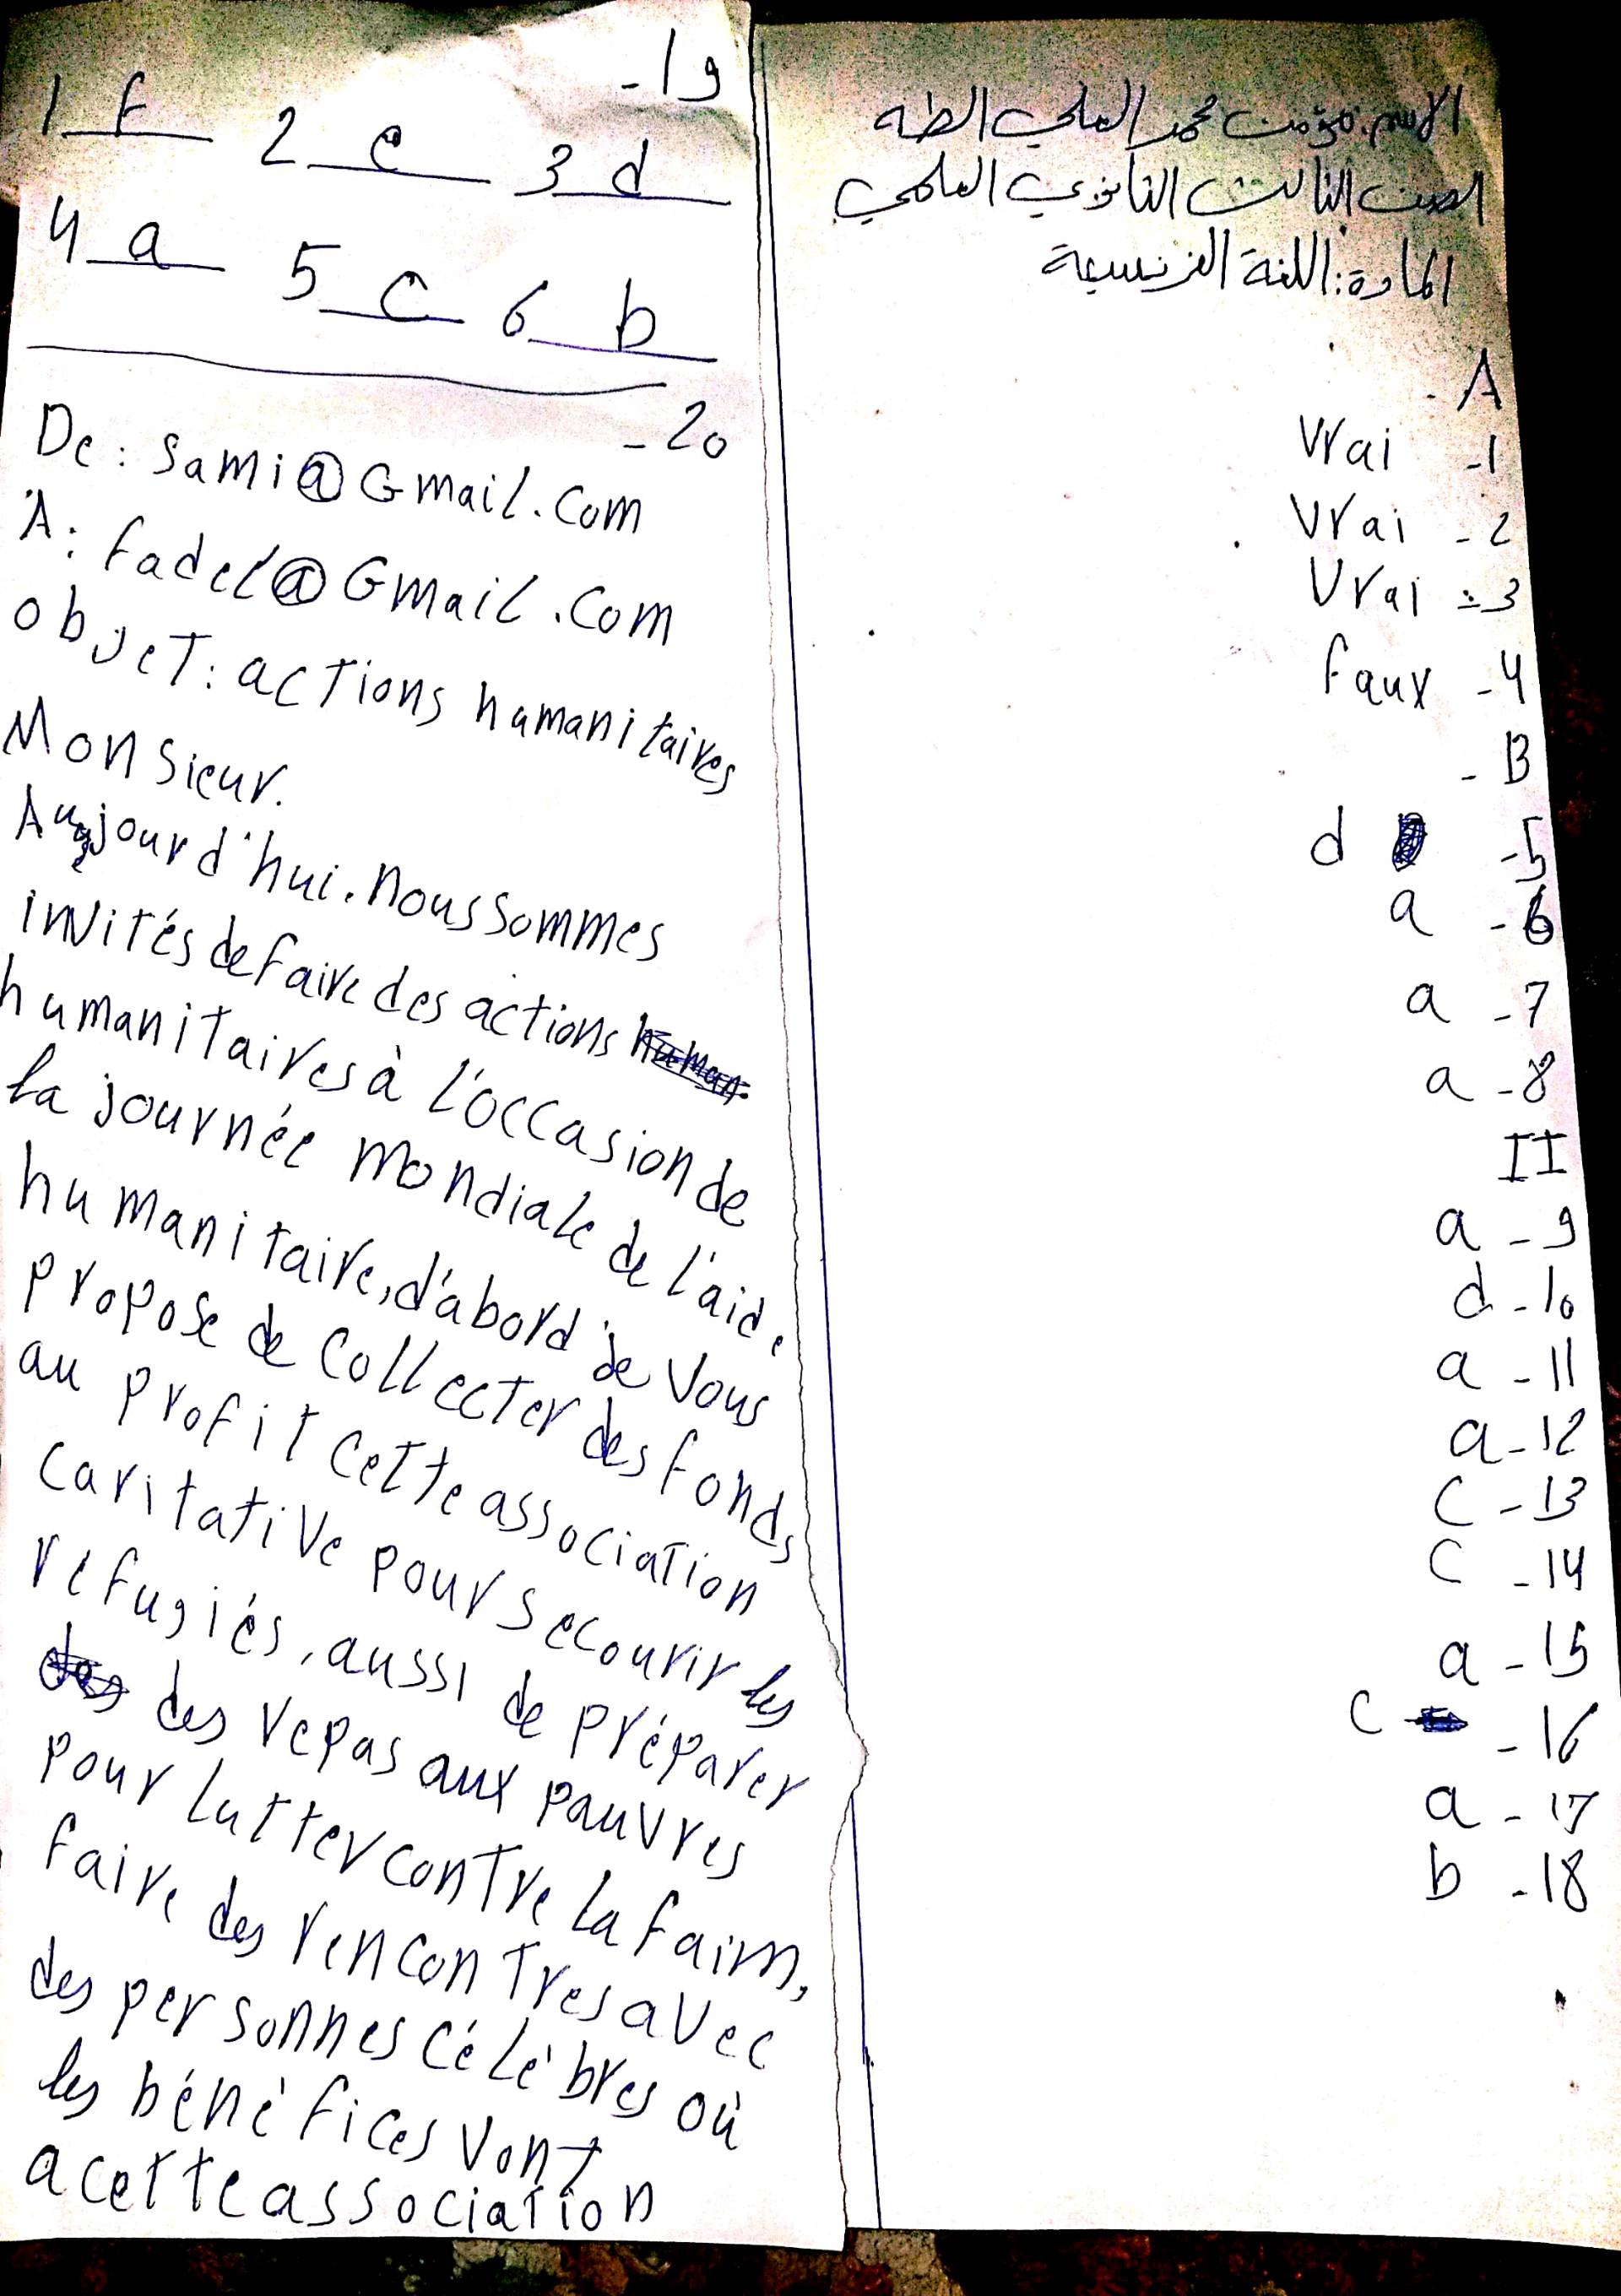 الاسم: مؤمن محمد العلي الطه
الصف: الثالث الثانوي العلمي
المادة: اللغة الفرنسية
A -
1- Vrai
2- Vrai
3- Vrai
4- Faux
B -
5- d
6- a
7- a
8- a
II
9- a
10- d
11- a
12- a
13- C
14- C
15- a
16- C
17- a
18- b
19-
1 f 2 e 3 d
4 a 5 c 6 b
20-
De: Sami@Gmail.Com
A: fadel@Gmail.Com
objet: actions humanitaires
Monsieur.
Aujourd'hui. nous sommes
invités de faire des actions
humanitaires à l'occasion de
la journée mondiale de l'aide
humanitaire, d'abord je vous
propose de collecter des fonds
au profit cette association
caritative pour secourir les
refugiés, aussi de préparer
des repas aux pauvres
pour lutter contre la faim,
faire des rencontres avec
des personnes célèbres où
les bénéfices vont
a cette association